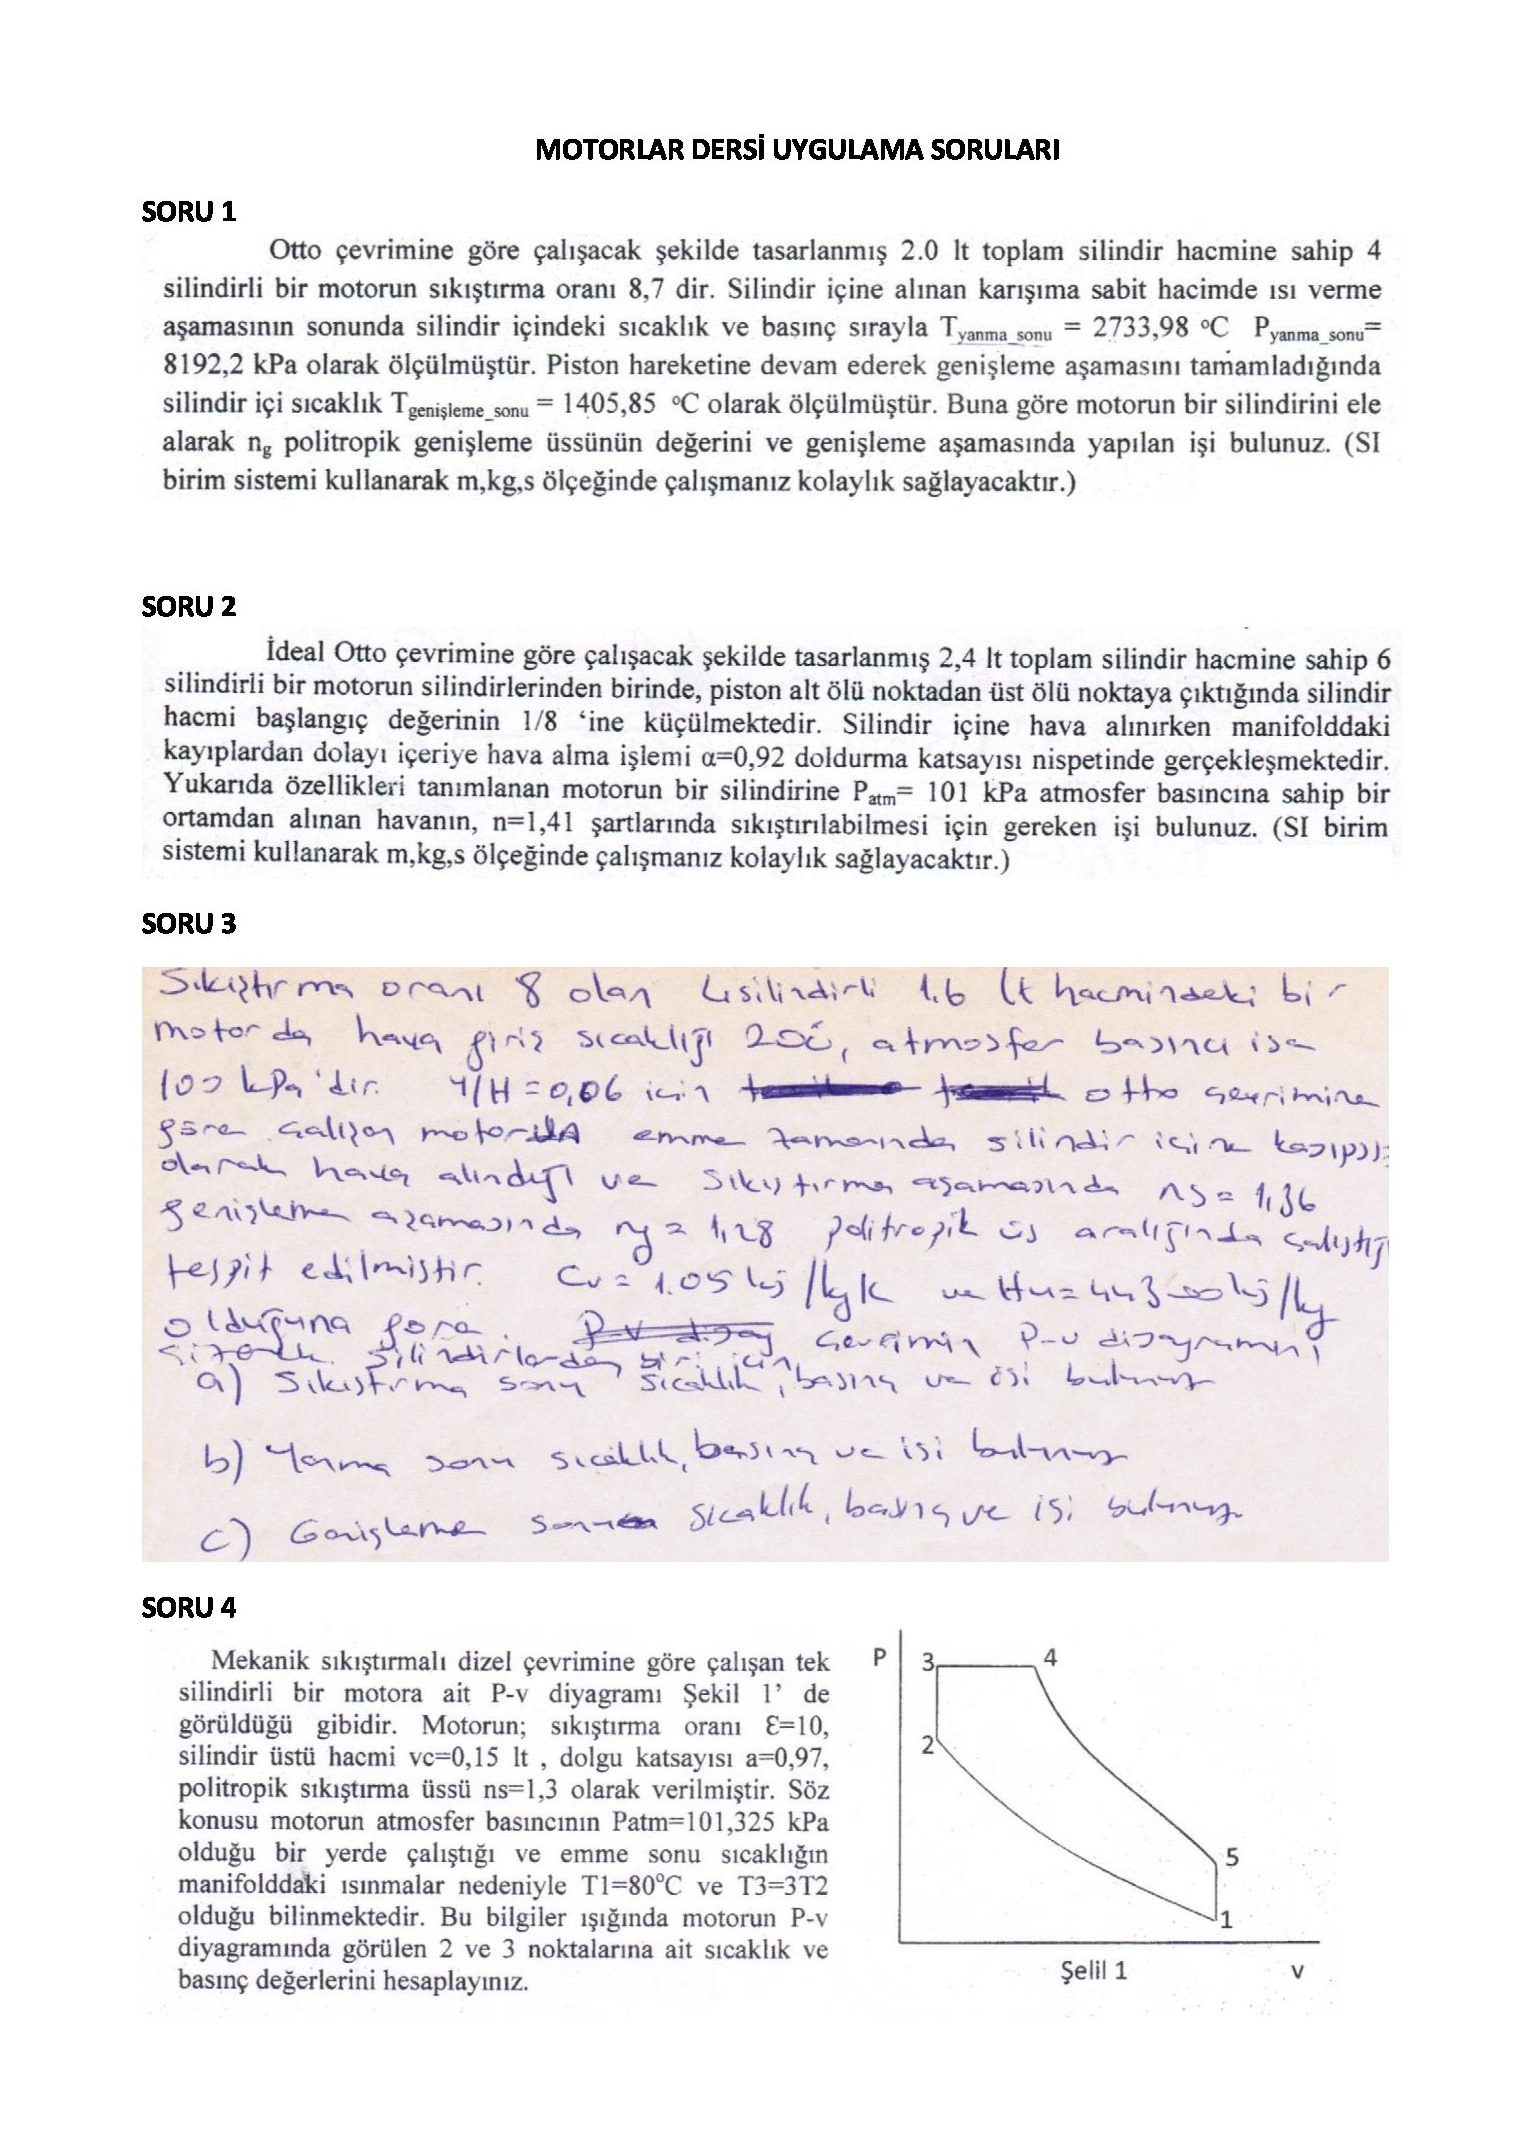 MOTORLAR DERSİ UYGULAMA SORULARI
SORU 1
Otto çevrimine göre çalışacak şekilde tasarlanmış 2.0 lt toplam silindir hacmine sahip 4
silindirli bir motorun sıkıştırma oranı 8,7 dir. Silindir içine alınan karışıma sabit hacimde ısı verme
aşamasının sonunda silindir içindeki sıcaklık ve basınç sırayla Tyanma_sonu = 2733,98 ºC Pyanma_sonu=
8192,2 kPa olarak ölçülmüştür. Piston hareketine devam ederek genişleme aşamasını tamamladığında
silindir içi sıcaklık Tgenişleme_sonu = 1405,85 ºC olarak ölçülmüştür. Buna göre motorun bir silindirini ele
alarak ng politropik genişleme üssünün değerini ve genişleme aşamasında yapılan işi bulunuz. (SI
birim sistemi kullanarak m,kg,s ölçeğinde çalışmanız kolaylık sağlayacaktır.)
SORU 2
İdeal Otto çevrimine göre çalışacak şekilde tasarlanmış 2,4 lt toplam silindir hacmine sahip 6
silindirli bir motorun silindirlerinden birinde, piston alt ölü noktadan üst ölü noktaya çıktığında silindir
hacmi başlangıç değerinin 1/8 ‘ine küçülmektedir. Silindir içine hava alınırken manifolddaki
kayıplardan dolayı içeriye hava alma işlemi α=0,92 doldurma katsayısı nispetinde gerçekleşmektedir.
Yukarıda özellikleri tanımlanan motorun bir silindirine Patm= 101 kPa atmosfer basıncına sahip bir
ortamdan alınan havanın, n=1,41 şartlarında sıkıştırılabilmesi için gereken işi bulunuz. (SI birim
sistemi kullanarak m,kg,s ölçeğinde çalışmanız kolaylık sağlayacaktır.)
SORU 3
Sıkıştırma oranı 8 olan 4 silindirli 1.6 lt hacmindeki bir
motorda hava giriş sıcaklığı 20C, atmosfer basıncı ise
100 kPa'dır. Y/H=0,06 için otto çevrimine
göre çalışan motorda emme zamanında silindir içine kayıpsız
olarak hava alındığı ve sıkıştırma aşamasında ns=1,36
genişleme aşamasında ng=1,28 politropik üs aralığında çalıştığı
tespit edilmiştir. Cv=1.05 kj/kgK ve Hu=44300 kj/kg
olduğuna göre çevrimin P-v diyagramını
çizerek silindirlerden biri için
a) Sıkıştırma sonu sıcaklık, basınç ve işi bulunuz
b) Yanma sonu sıcaklık, basınç ve işi bulunuz
c) Genişleme sonu sıcaklık, basınç ve işi bulunuz.
SORU 4
Mekanik sıkıştırmalı dizel çevrimine göre çalışan tek
silindirli bir motora ait P-v diyagramı Şekil 1’ de
görüldüğü gibidir. Motorun; sıkıştırma oranı Ɛ=10,
silindir üstü hacmi vc=0,15 lt , dolgu katsayısı a=0,97,
politropik sıkıştırma üssü ns=1,3 olarak verilmiştir. Söz
konusu motorun atmosfer basıncının Patm=101,325 kPa
olduğu bir yerde çalıştığı ve emme sonu sıcaklığın
manifolddaki ısınmalar nedeniyle T1=80ºC ve T3=3T2
olduğu bilinmektedir. Bu bilgiler ışığında motorun P-v
diyagramında görülen 2 ve 3 noktalarına ait sıcaklık ve
basınç değerlerini hesaplayınız.
P
3
4
2
5
1
Şelil 1
v